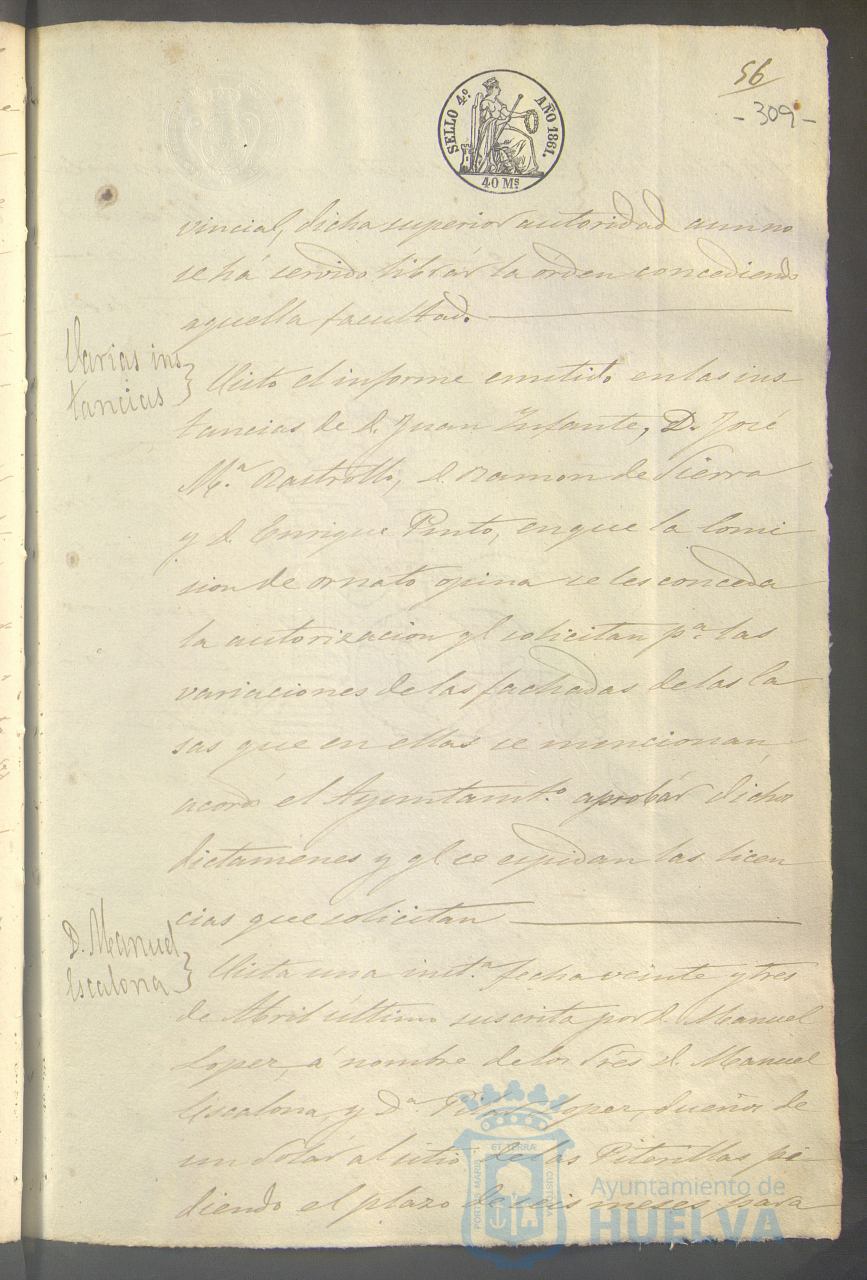 56
- 309 -
SELLO 4.º AÑO 1861.
40 Ms
vincial, dicha superior autoridad aun no
se há servido librár la órden concediendo
aquella facultad.
Varias ins
tancias
Visto el informe emitido en las ins-
tancias de D. Juan Infante, D. José
M.ª Rastrollo, D. Ramon de Sierra
y D. Enrique Pinto, en que la Comi
sion de ornato opina se les conceda
la autorizacion q.e solicitan p.ª las
variaciones de las fachadas de las Ca
sas que en ellas se mencionan
acordó el Ayuntamt.º aprobár dichos
dictamenes y q.e se espidan las licen
cias que solicitan
D. Manuel
Escalona
Vista una inst.ª fecha veinte y tres
de Abril último suscrita por D. Manuel
Lopez, á nombre de los Sres D. Manuel
Escalona, y D.ª Pilar Lopez, dueños de
un solár al sitio de las Piterillas pi
diendo el plazo de seis meses para
PORTUS MARIS ET TERRÆ CUSTODIA
Ayuntamiento de
HUELVA